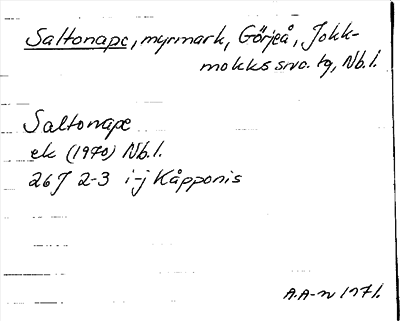 Saltonape, myrmark, Görjeå, Jokk-
mokks sn o. tg, Nb.l.
Saltonape
ek (1970) Nb.l.
26J 2-3 i-j Kåpponis
A.A-n 1971.